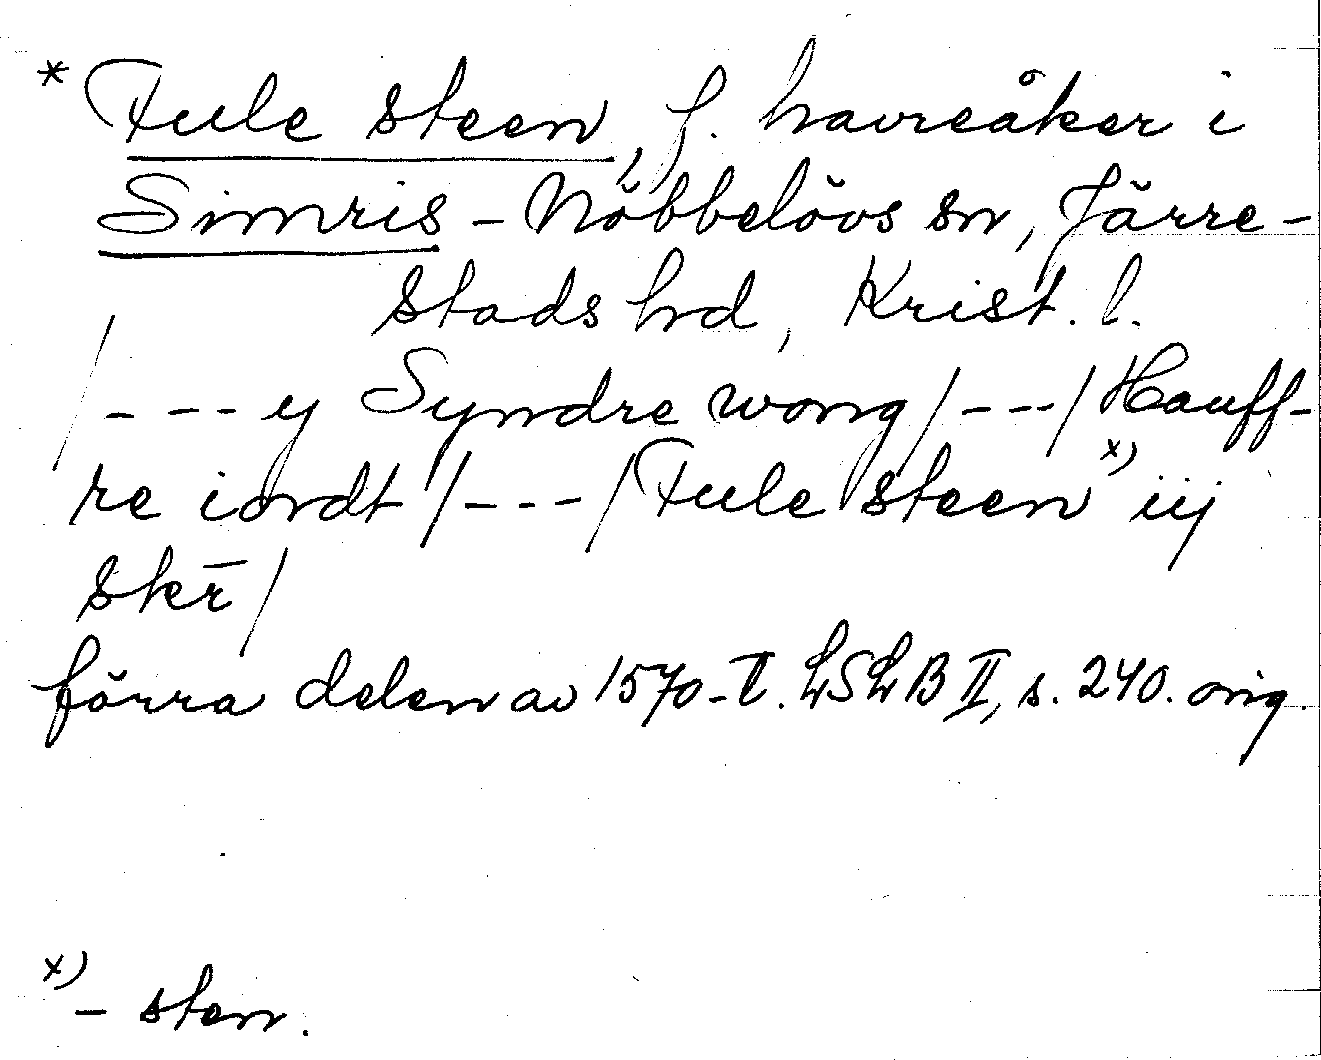 * Fule steen, f. havreåker i
Simris - Nöbbelövs sn, Järre-
stads hd, Krist. l.
/- - - - y Syndre wong/- - -/Hauff-
re iordt/- - - -/Fule steen x) iij
skr̄/
förra delen av 1570-t. LSLB II, s. 240. orig.
x) - sten.